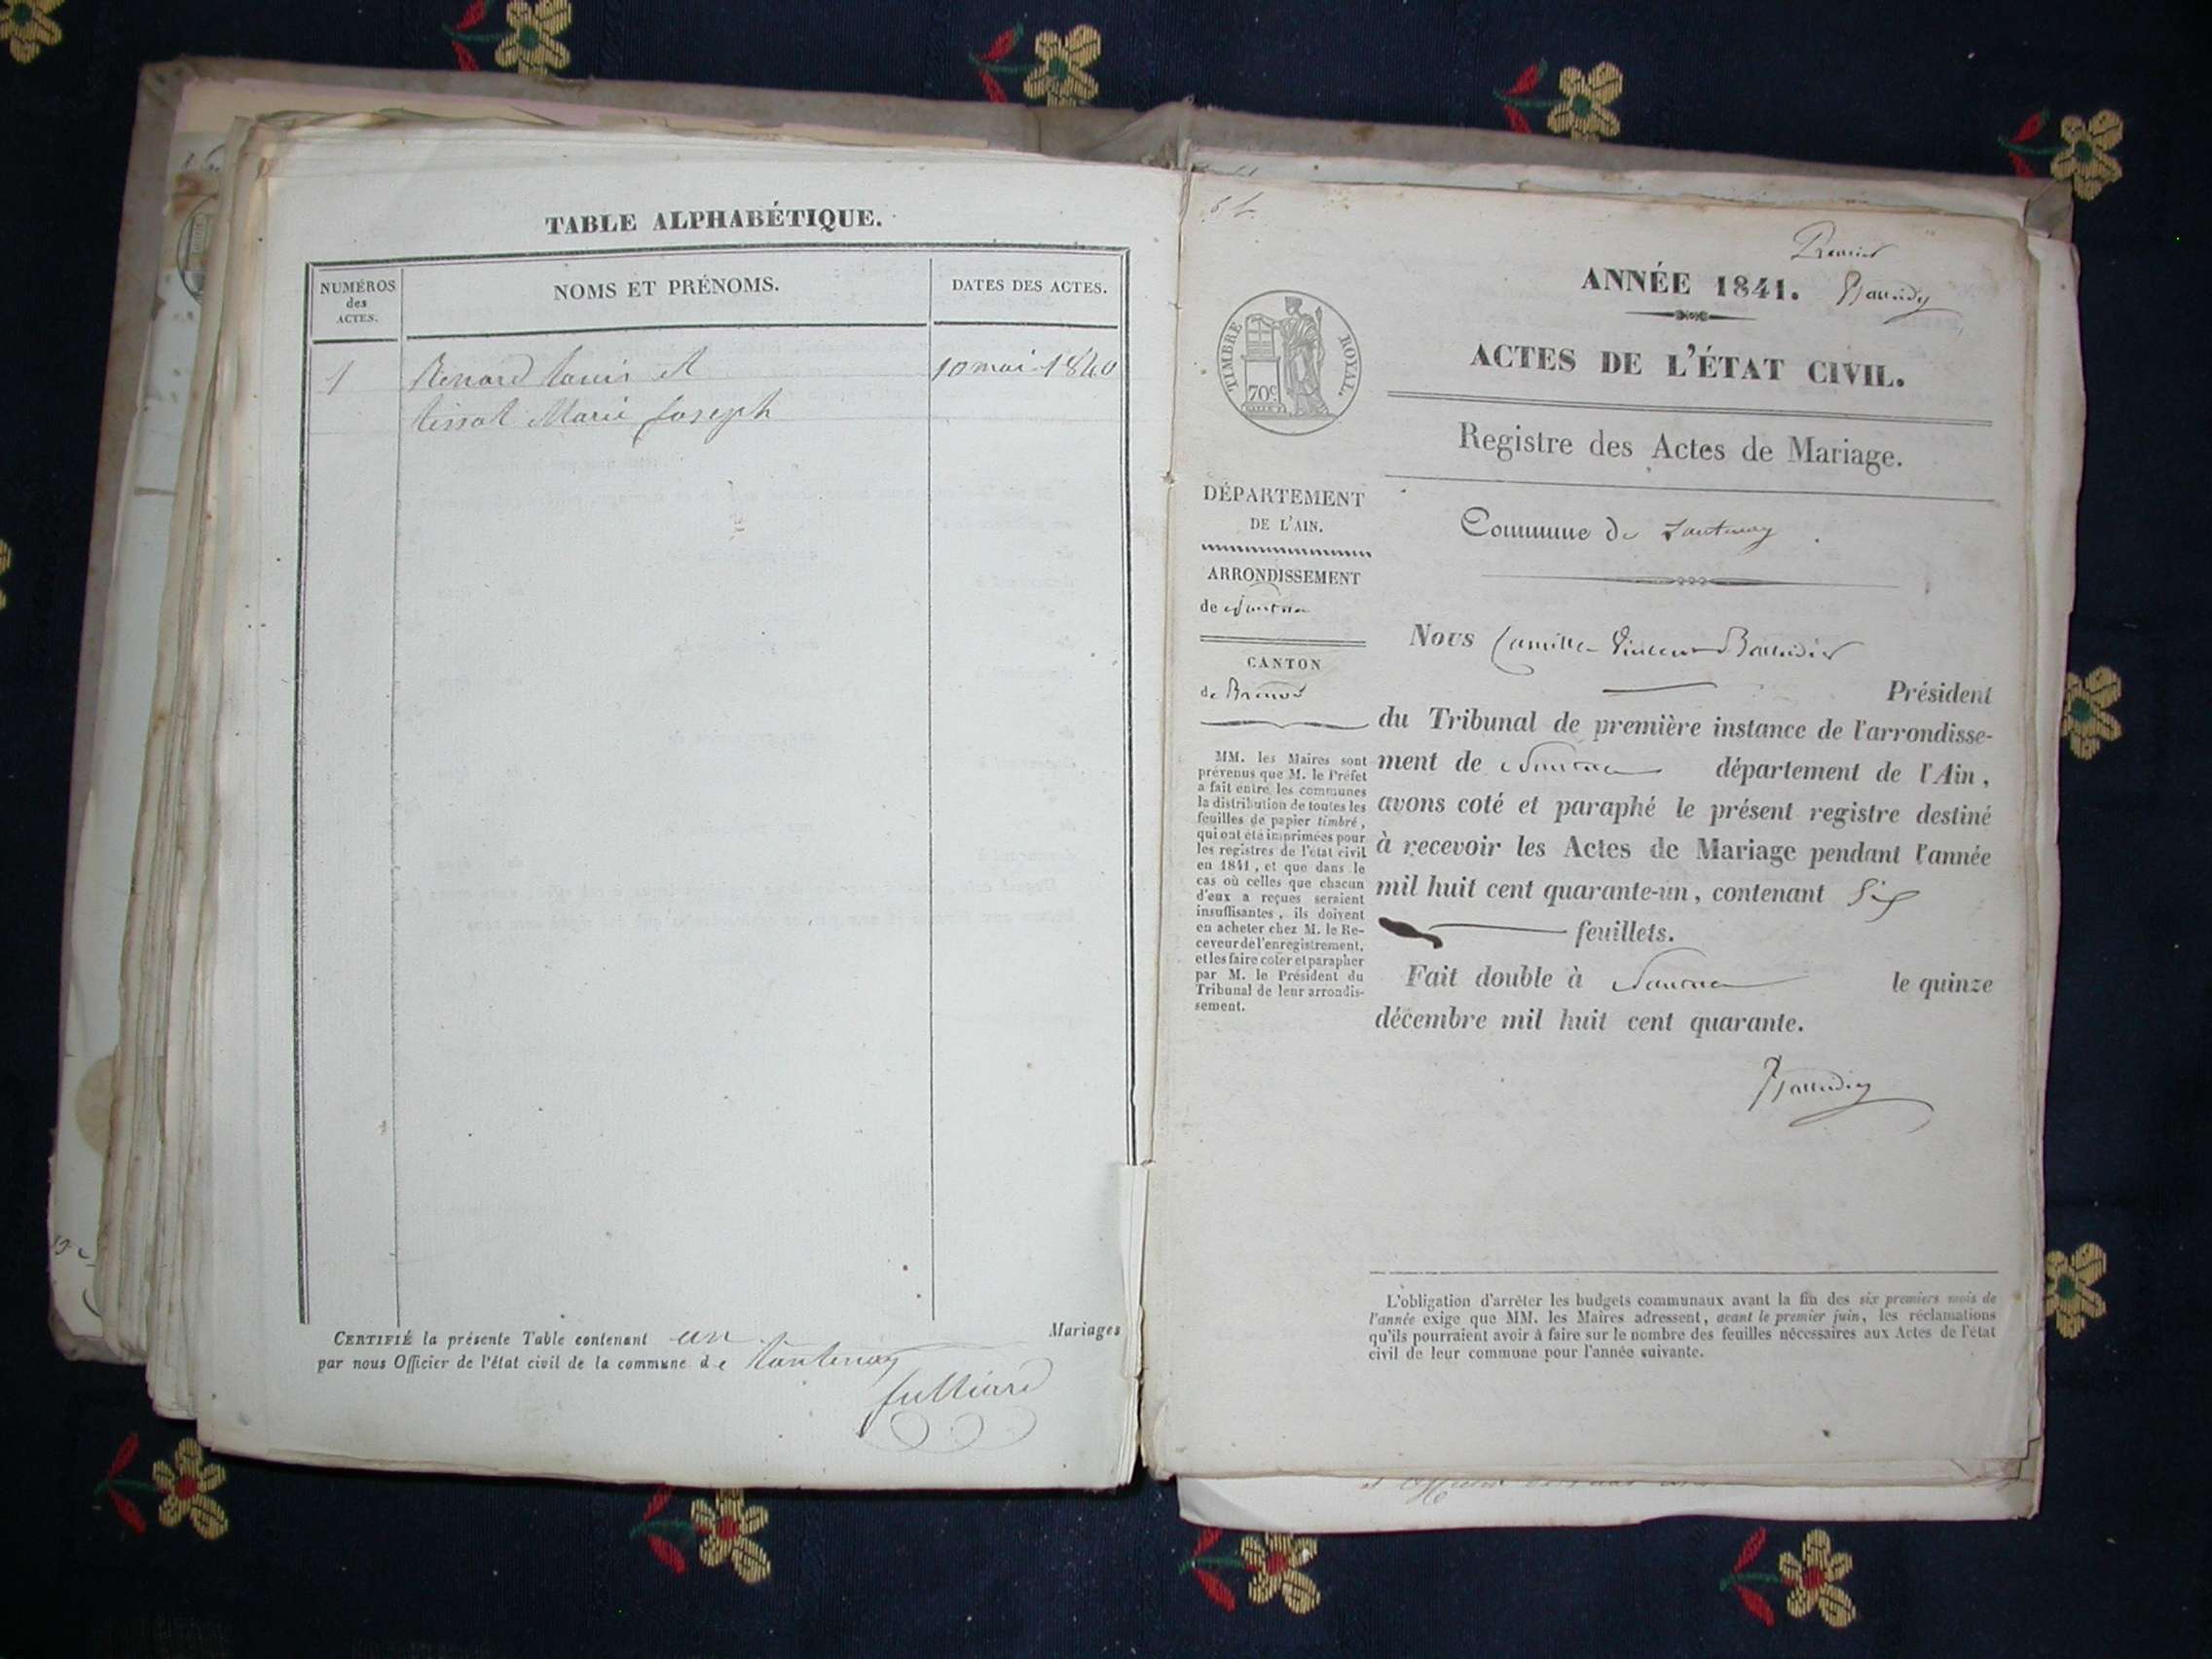 TABLE ALPHABÉTIQUE.
NUMÉROS
des
ACTES.
NOMS ET PRÉNOMS.
DATES DES ACTES.
1
Renard Louis et
10 mai 1840
tissot Marie Joseph
CERTIFIÉ la présente Table contenant un Mariages
par nous Officier de l'état civil de la commune de Lantenay
Julliard
Premier
ANNÉE 1841.
ACTES DE L'ÉTAT CIVIL.
TIMBRE ROYAL.
70c
Registre des Actes de Mariage.
DÉPARTEMENT
DE L'AIN.
ARRONDISSEMENT
de Nantua
CANTON
de Brenod
MM. les Maires sont
prévenus que M. le Préfet
a fait entre les communes
la distribution de toutes les
feuilles de papier timbré,
qui ont été imprimées pour
les registres de l'état civil
en 1841, et que dans le
cas où celles que chacun
d'eux a reçues seraient
insuffisantes, ils doivent
en acheter chez M. le Re-
ceveur de l'enregistrement,
et les faire coter et parapher
par M. le Président du
Tribunal de leur arrondis-
sement.
Commune de Lantenay
Nous Camille Vincent Baudier
Président
du Tribunal de première instance de l'arrondisse-
ment de Nantua département de l'Ain,
avons coté et paraphé le présent registre destiné
à recevoir les Actes de Mariage pendant l'année
mil huit cent quarante-un, contenant Six
feuillets.
Fait double à Nantua le quinze
décembre mil huit cent quarante.
L'obligation d'arrêter les budgets communaux avant la fin des six premiers mois de
l'année exige que MM. les Maires adressent, avant le premier juin, les réclamations
qu'ils pourraient avoir à faire sur le nombre des feuilles nécessaires aux Actes de l'état
civil de leur commune pour l'année suivante.